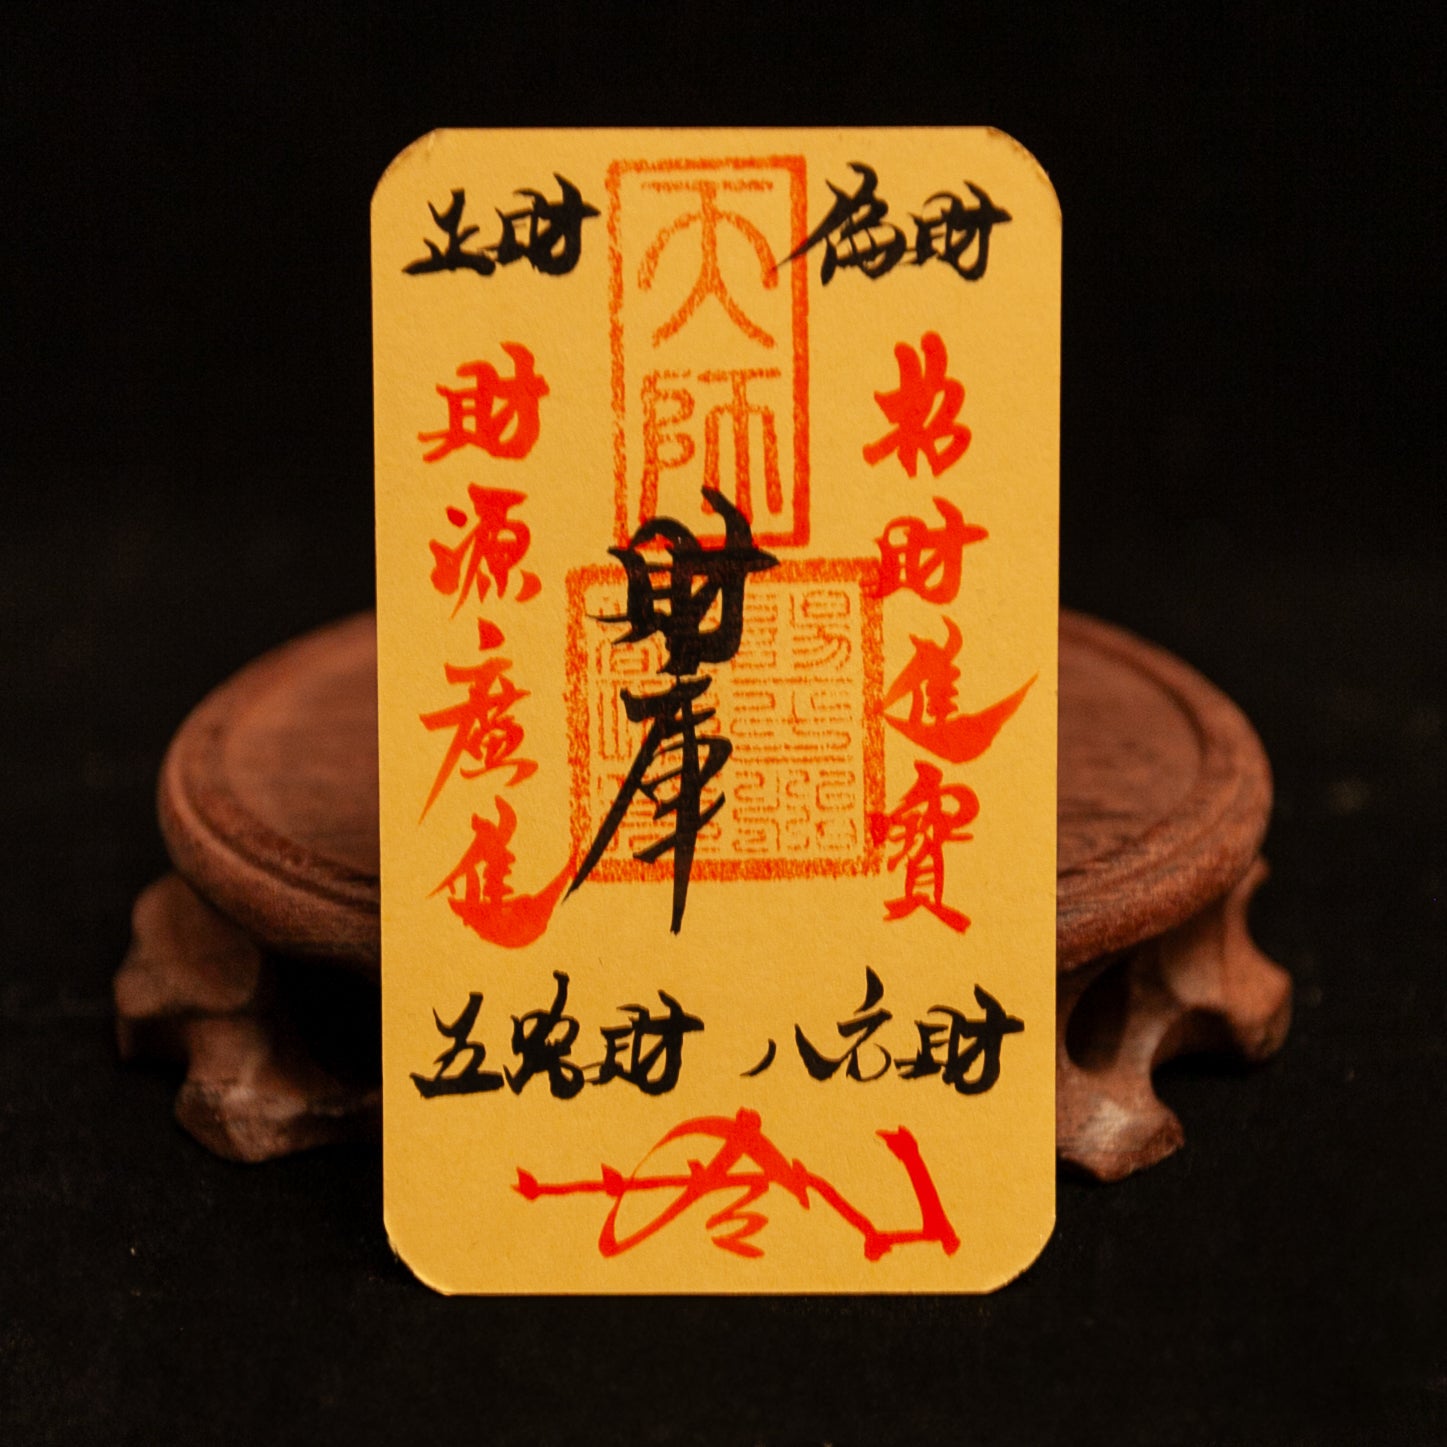 正財
偏財
天師
招財進寶
財庫
財源廣進
五路財
八方財